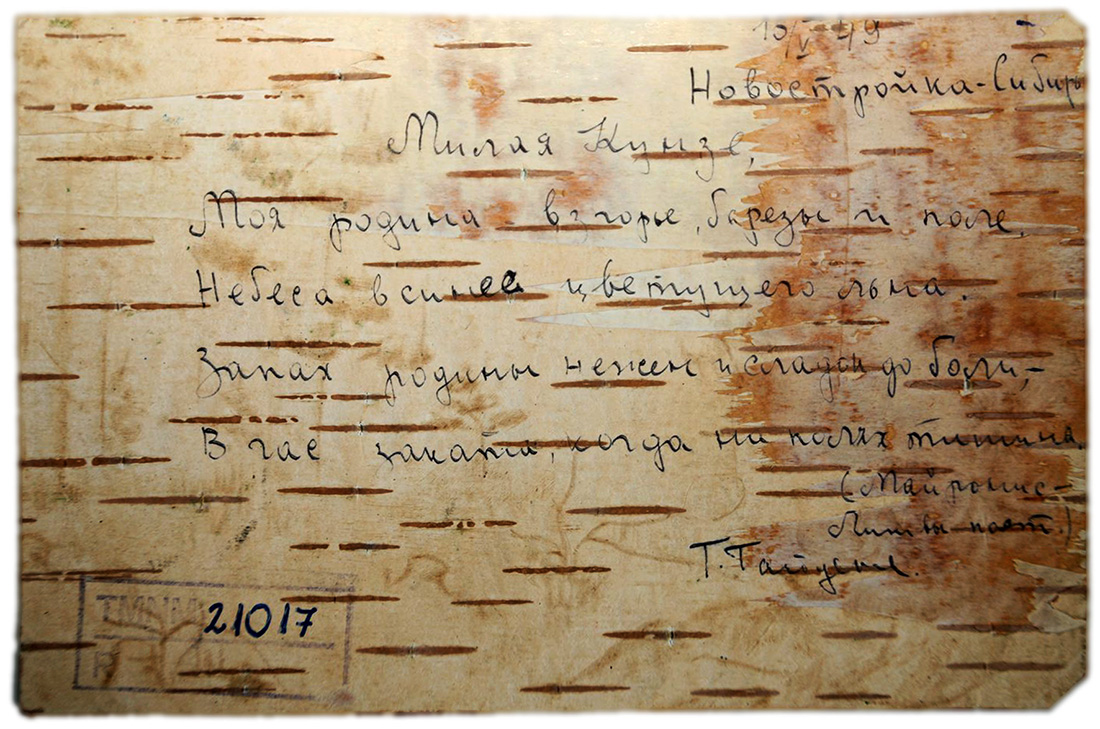 10/V 49
Новостройка-Сибирь
Милая Кунзе,
Моя родина - взгорье, березы и поле,
Небеса в синее цветущего льна.
Запах родины нежен и сладок до боли,-
В час заката, когда на полях тишина.
(Майронис-
Литвы поэт.)
Т.
21017